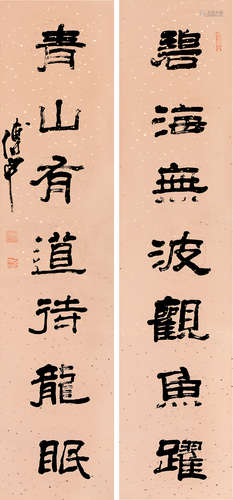 碧海無波觀魚躍
青山有道待龍眠
傅申